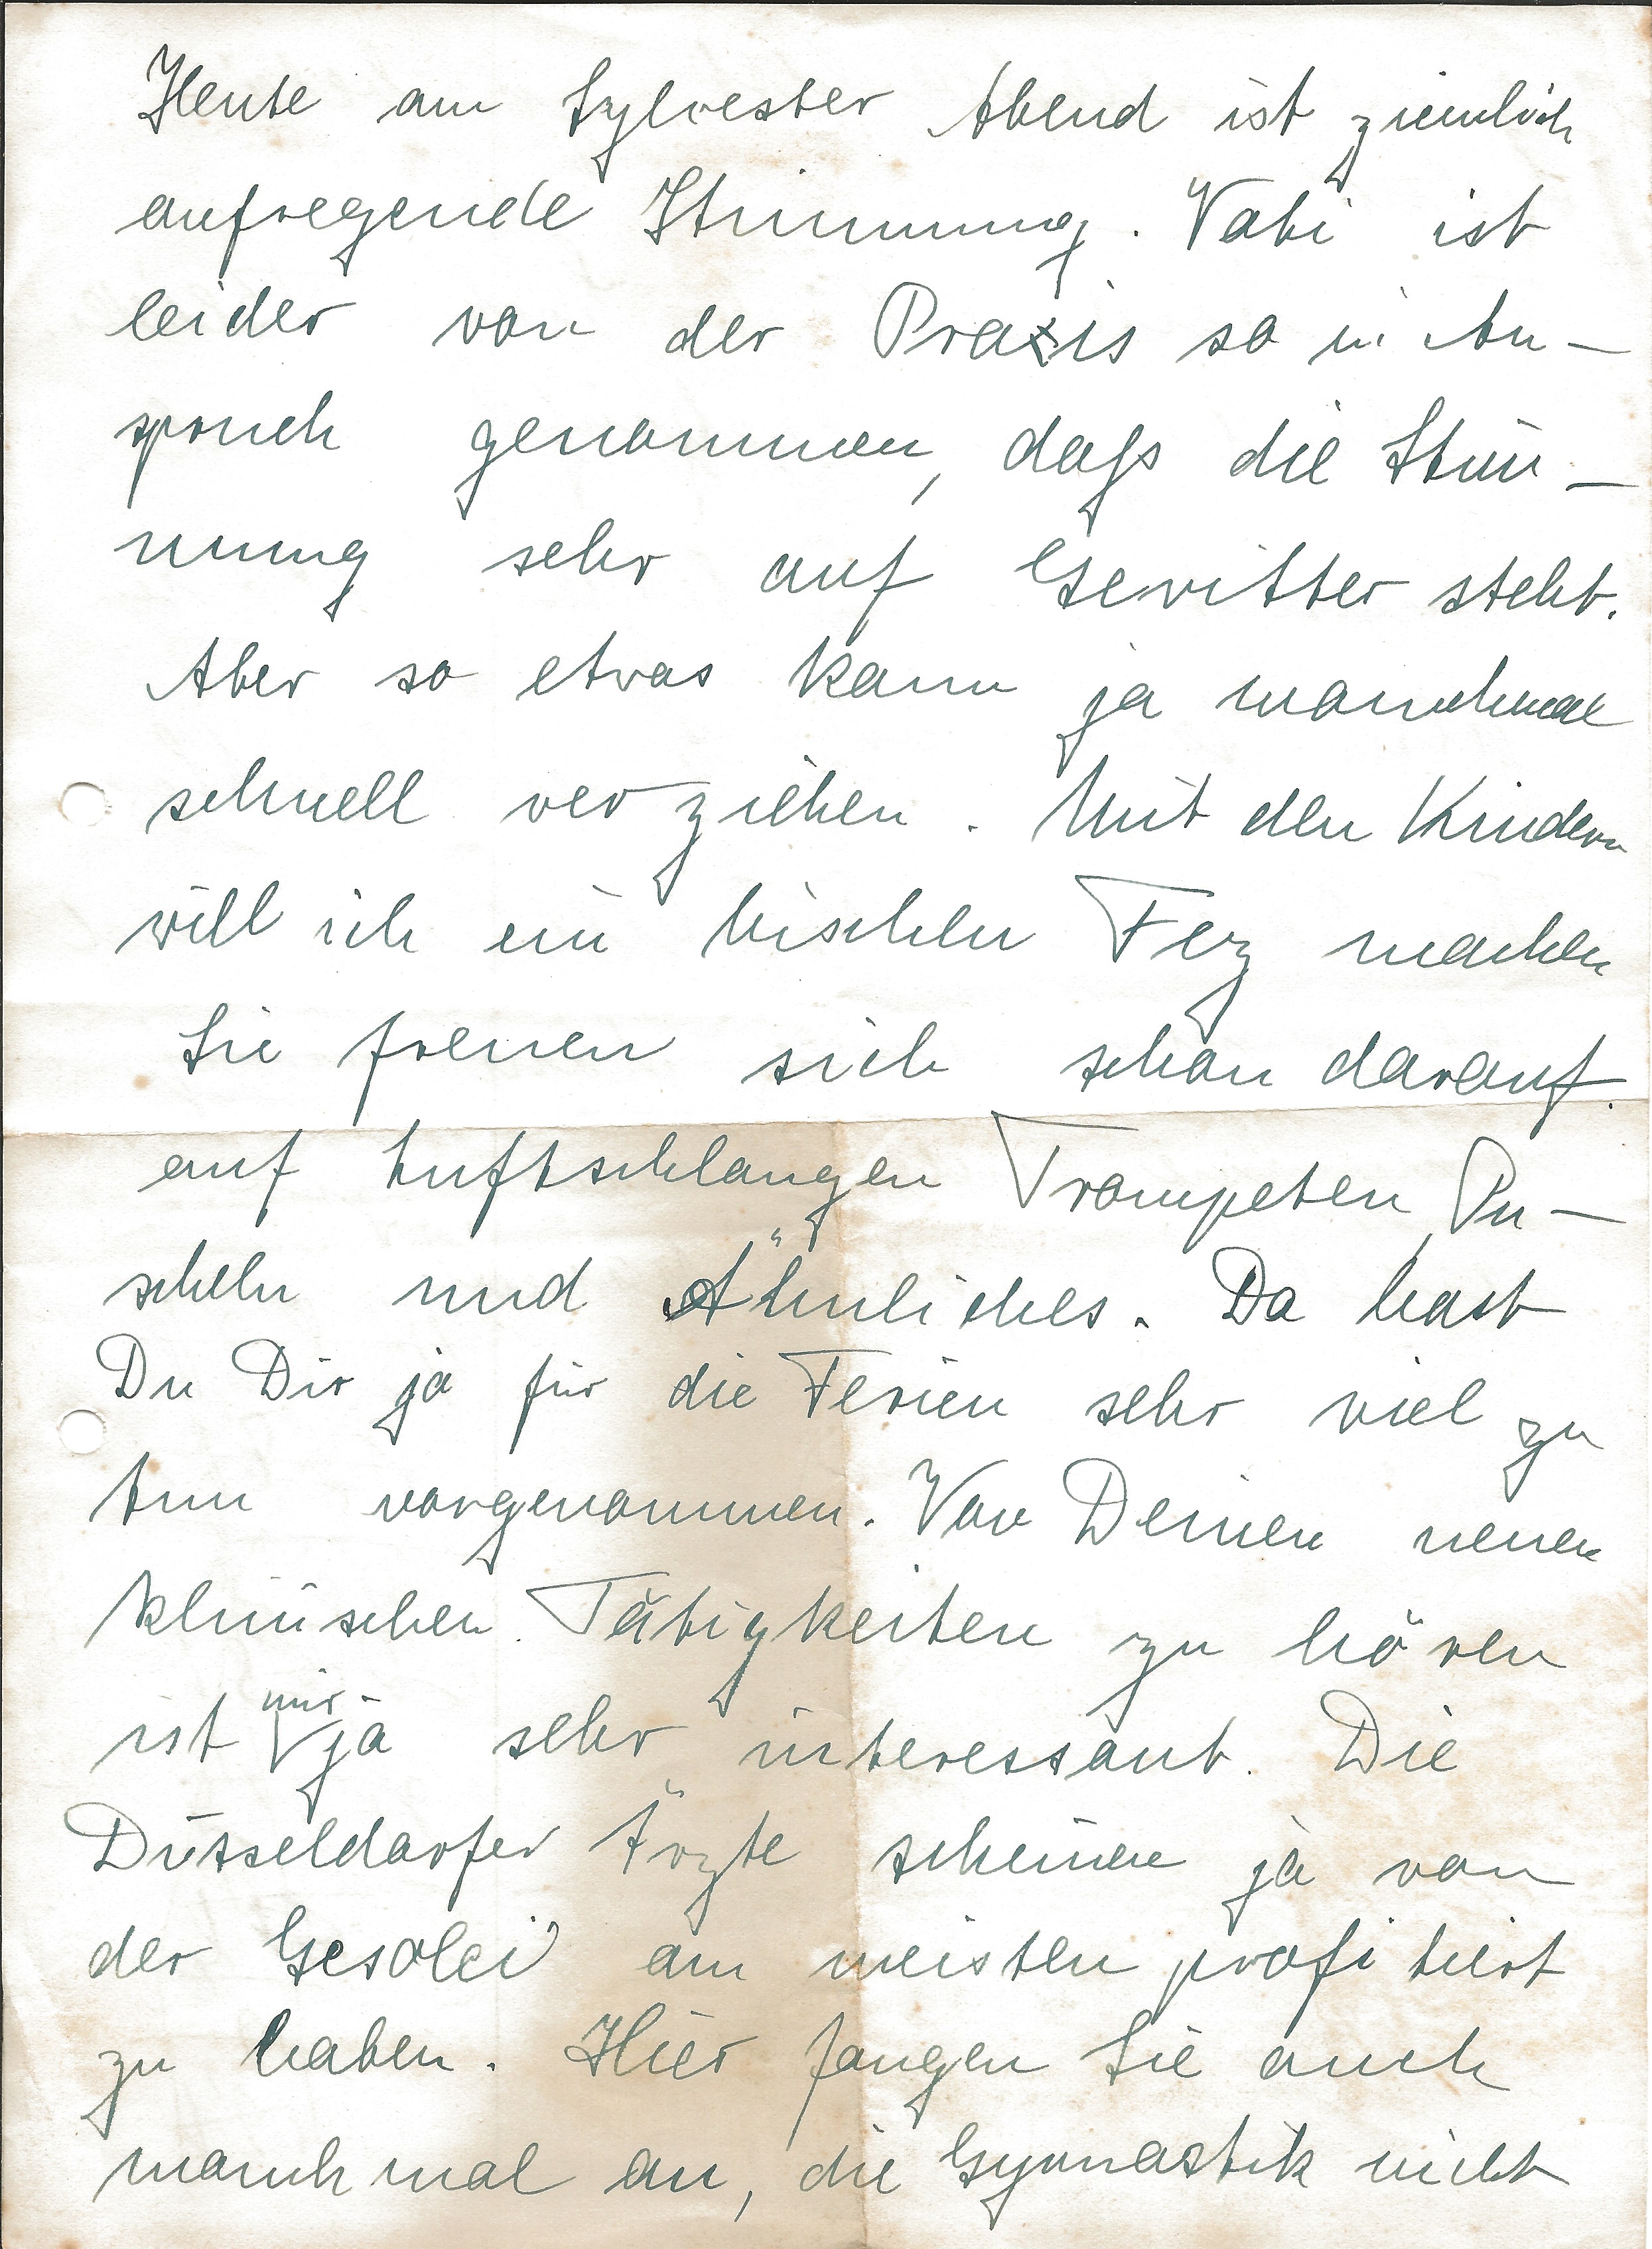 Heute am Sylvester Abend ist ziemlich
aufregende Stimmung. Vati ist
leider von der Praxis so in An-
spruch genommen, daß die Stim-
mung sehr auf Gewitter steht.
Aber so etwas kann ja manchmal
schnell verziehen. Mit den Kindern
will ich ein bischen Fez machen
Sie freuen sich schon darauf.
auf Luftschlangen Trompeten, Pu-
scheln und Ähnliches. Da hast
Du Dir ja für die Ferien sehr viel zu
tun vorgenommen. Von Deinen neuen
klinischen Tätigkeiten zu hören
ist mir ja sehr interessant. Die
Düsseldorfer Ärzte scheinen ja von
der Gesolei am meisten profitiert
zu haben. Hier fangen Sie auch
manchmal an, die Gymnastik nicht